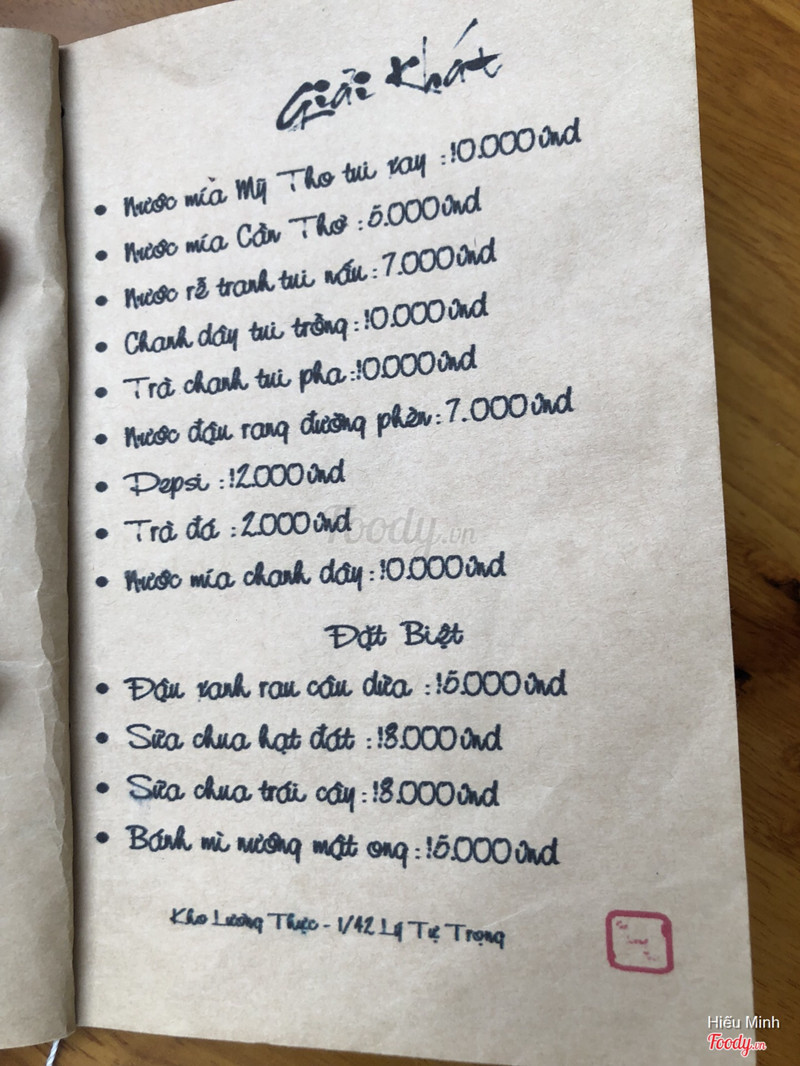 Giải Khát
• Nước mía Mỹ Tho tui xay : 10.000 vnd
• Nước mía Cần Thơ : 5.000 vnd
• Nước rễ tranh tui nấu : 7.000 vnd
• Chanh dây tui trồng : 10.000 vnd
• Trà chanh tui pha : 10.000 vnd
• Nước đậu rang đường phèn : 7.000 vnd
• Pepsi : 12.000 vnd
• Trà đá : 2.000 vnd
Foody.vn
• Nước mía chanh dây : 10.000 vnd
Đặt Biệt
• Đậu xanh rau câu dừa : 15.000 vnd
• Sữa chua hạt đát : 18.000 vnd
• Sữa chua trái cây : 18.000 vnd
• Bánh mì nướng mật ong : 15.000 vnd
Kho Lương Thực - 1/42 Lý Tự Trọng
Hiếu Minh
Foody.vn